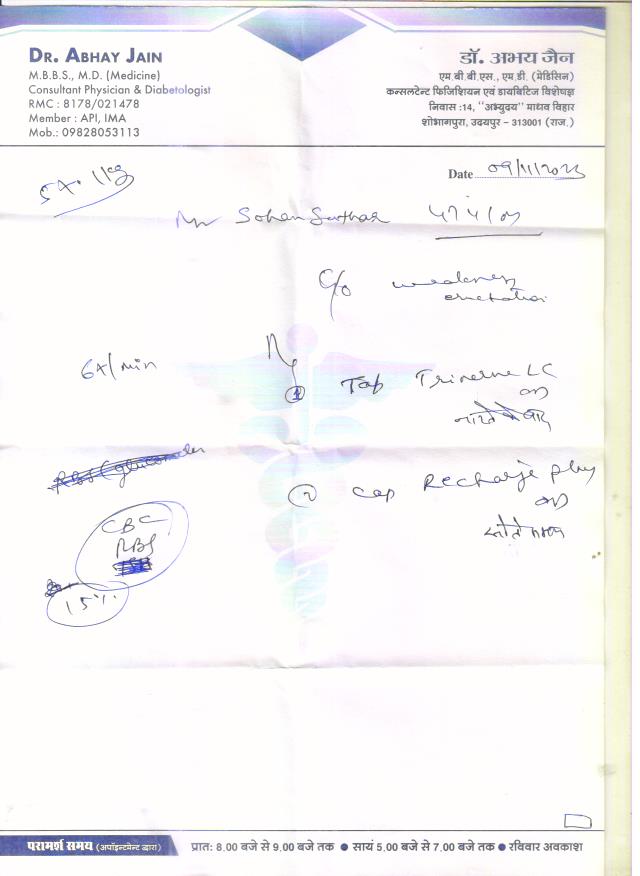 DR. ABHAY JAIN
M.B.B.S., M.D. (Medicine)
Consultant Physician & Diabetologist
RMC : 8178/021478
Member : API, IMA
Mob.: 09828053113
डॉ. अभय जैन
एम.बी.बी.एस., एम.डी. (मेडिसिन)
कन्सलटेन्ट फिजिशियन एवं डायबिटिज विशेषज्ञ
निवास :14, "अभ्युदय" माधव विहार
शोभागपुरा, उदयपुर - 313001 (राज.)
Date 09/11/2023
Sohan Suthar
C/o weakness
Tab Trinerve LC
OD
नाश्ते के बाद
② Cap Recharge plus
OD
सोते समय
CBC
RBS
15%
परामर्श समय (अपॉइन्टमेन्ट द्वारा) प्रात: 8.00 बजे से 9.00 बजे तक ● सायं 5.00 बजे से 7.00 बजे तक ● रविवार अवकाश